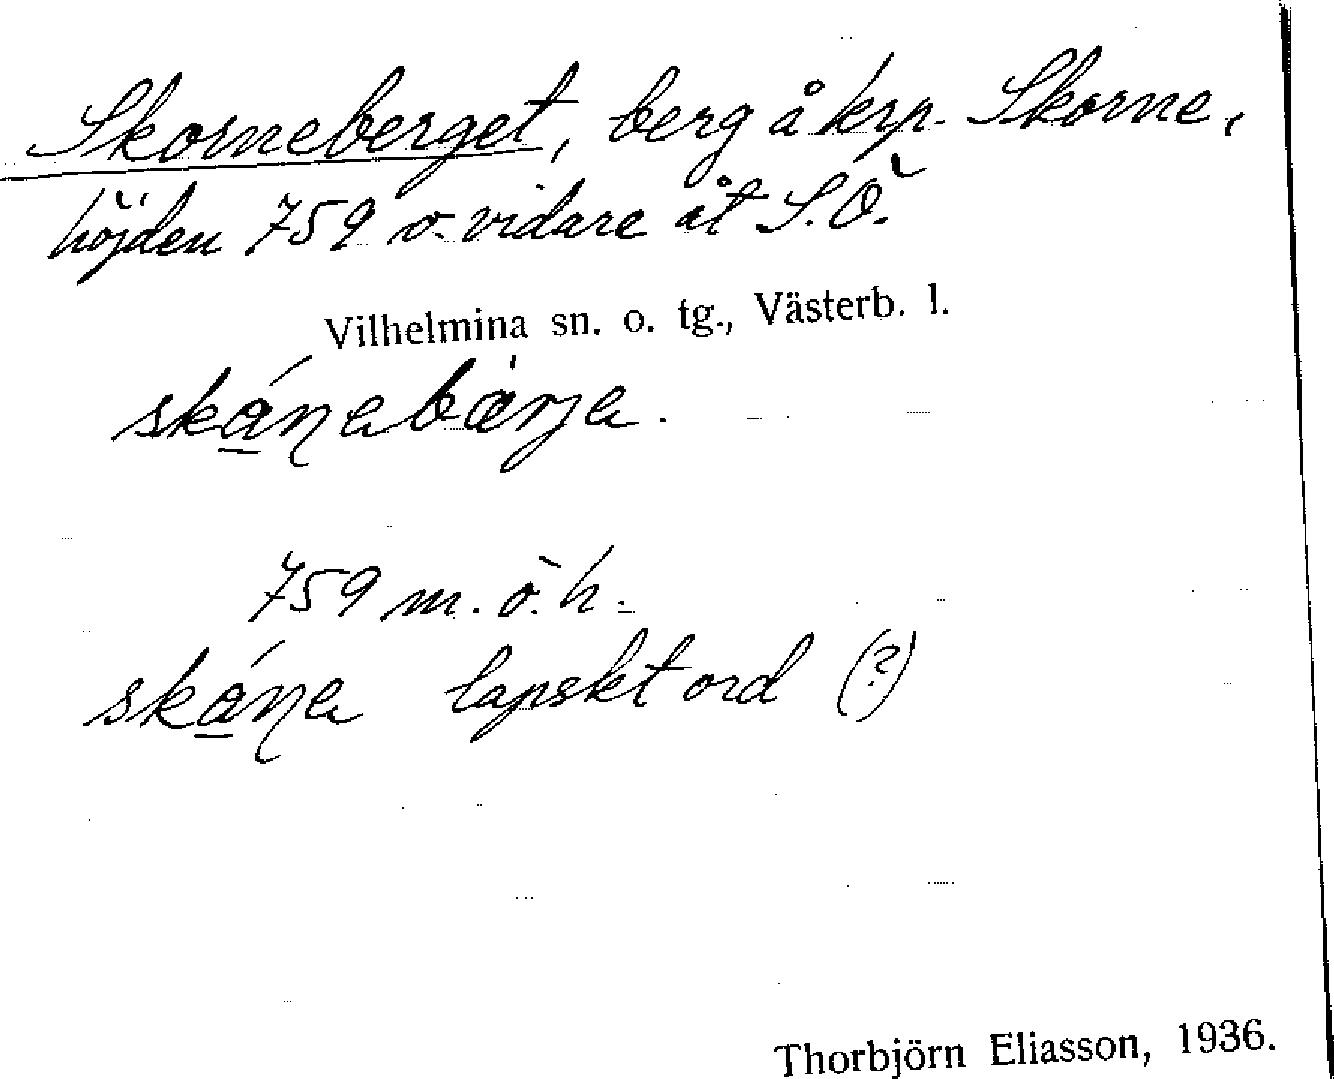 Skorneberget, berg å krp. Skorne,
höjden 759 o. vidare åt S.Ö.
Vilhelmina sn. o. tg., Västerb. l.
ská̱ꞃabàrja.
759 m. ö. h.
ská̱ꞃa lapskt ord (?)
Thorbjörn Eliasson, 1936.